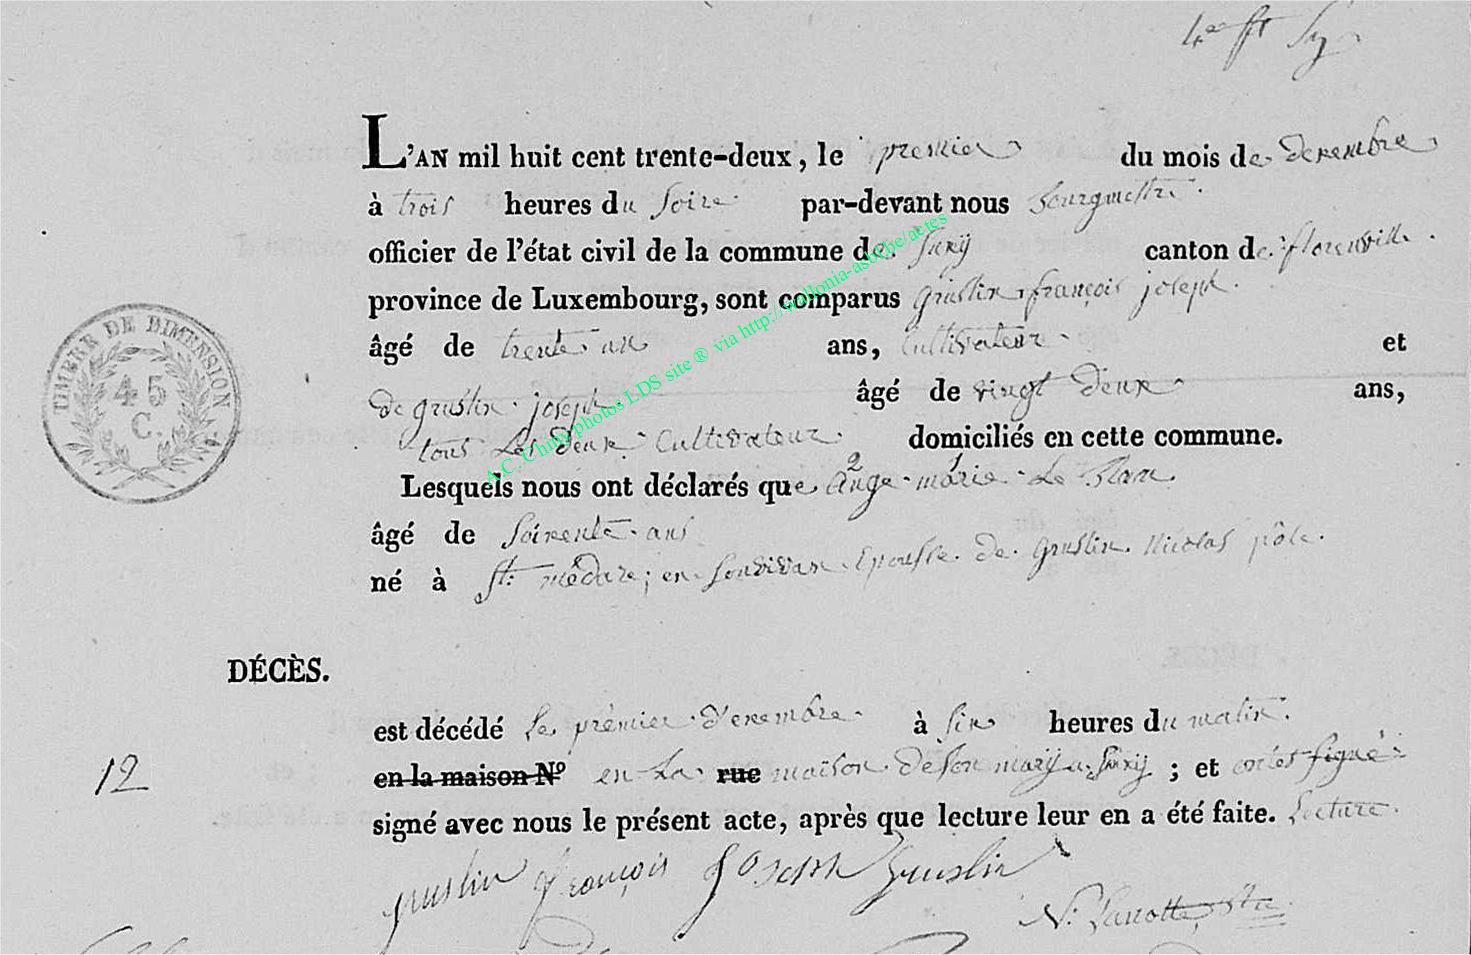 L'AN mil huit cent trente-deux, le premier du mois de decembre
à trois heures du Soire par-devant nous bourgmettre
officier de l'état civil de la commune de Suxÿ canton de florenville
province de Luxembourg, sont comparus gruslin françois joseph
âgé de trente un ans, Cultivateur et
de gruslin joseph âgé de vingt deux ans,
tous Les deux Cultivateur domiciliés en cette commune.
2 1
Lesquels nous ont déclarés que Ange marie Le Blan
âgé de Soixente ans
né à St: médare; en Sonvivan Epousse de gruslin Nicolas pôle
DÉCÈS.
est décédé Le prèmier decembre à Six heures du matin
12 en la maison Nº en La rue maison de son marÿ a Suxÿ ; et ont signé
signé avec nous le présent acte, après que lecture leur en a été faite. Lecture
gruslin françois Joseph gruslin
TIMBRE DE DIMENSION
45
C.
A.C. Chiny photos LDS site ® via http://wallonia-asbl.be/actes